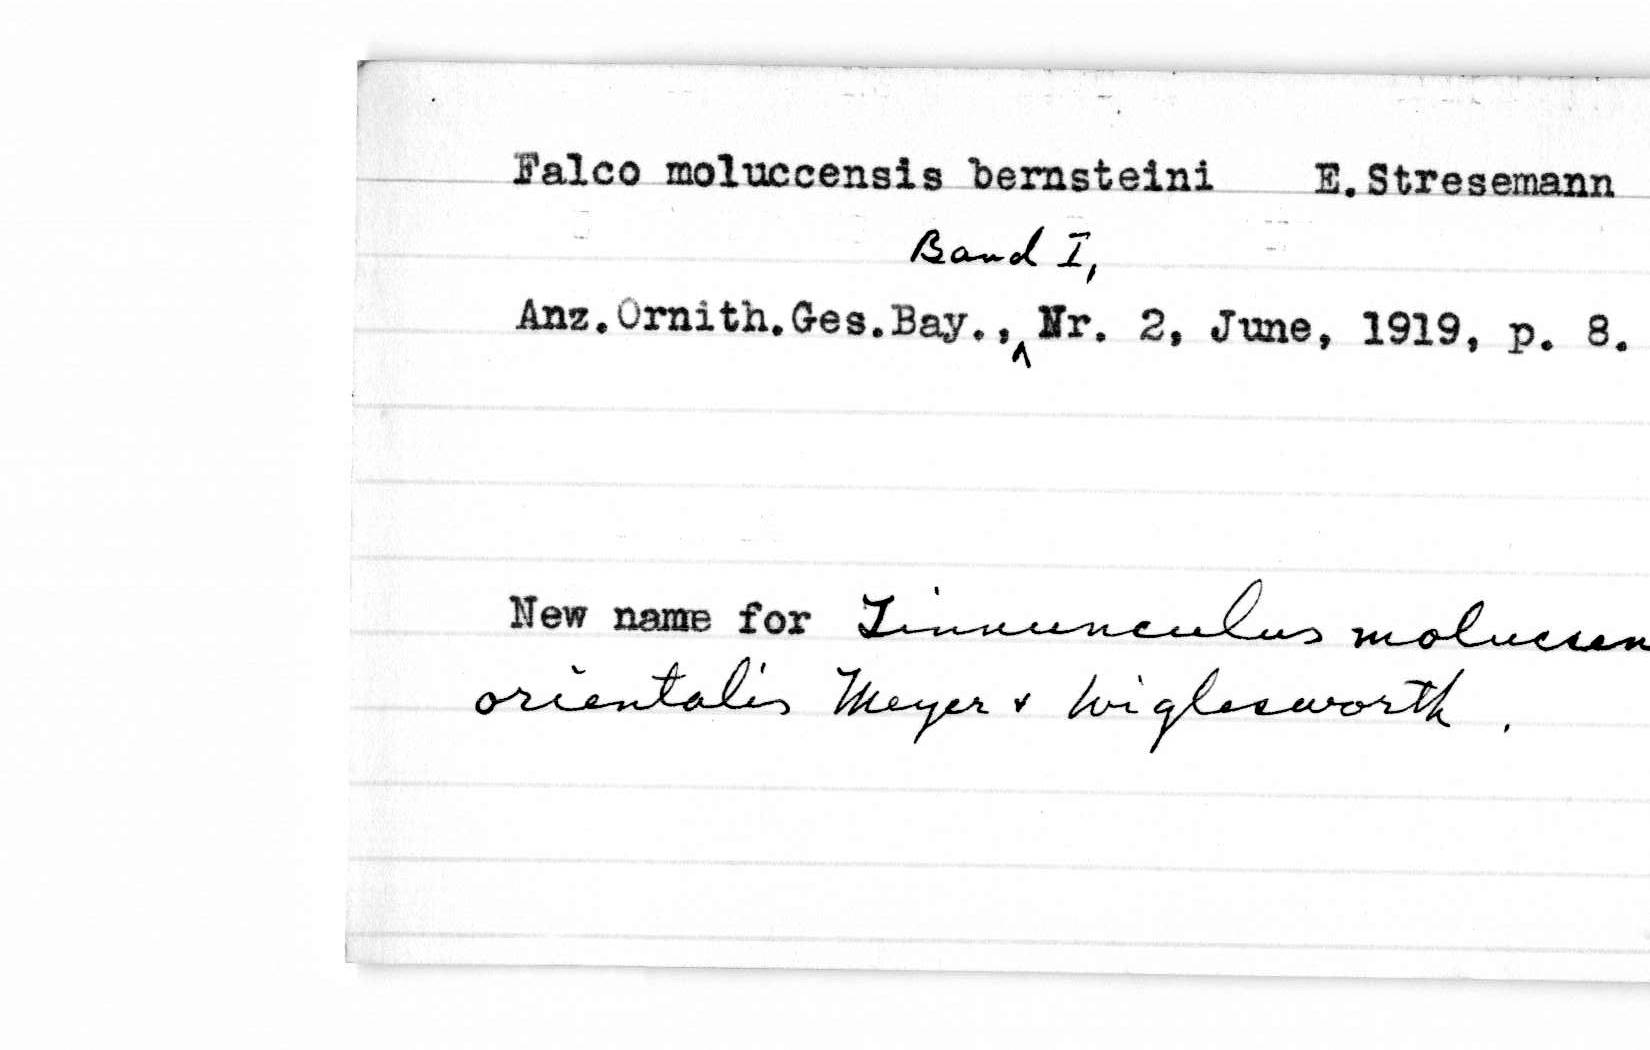 Falco moluccensis bernsteini E.Stresemann
Band I,
Anz.Ornith.Ges.Bay.,^ Nr. 2, June, 1919, p. 8.
New name for Tinnunculus moluccen
orientalis Meyer & Wiglesworth.